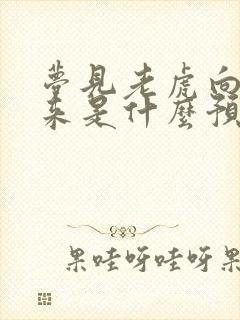 夢見老虎向
來是什麼預
果哇呀哇呀果